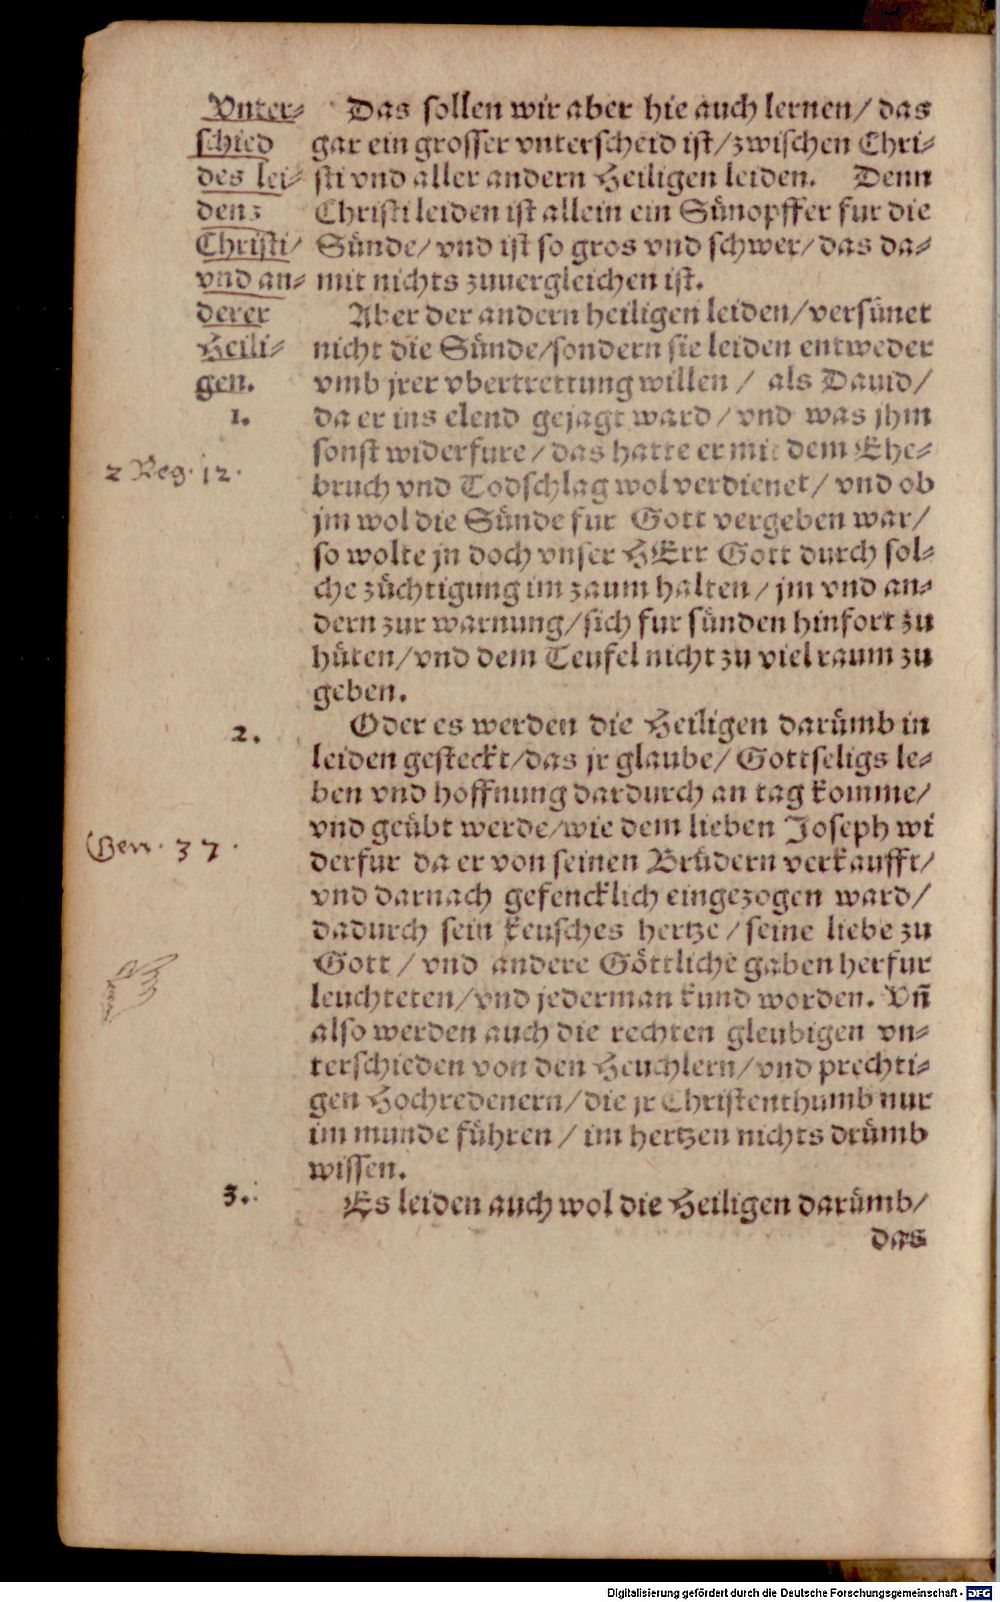 Vnter-
schied
des lei-
dens
Christi/
vnd an-
derer
Heili-
gen.
Das sollen wir aber hie auch lernen/ das
gar ein grosser vnterscheid ist/ zwischen Chri-
sti vnd aller andern Heiligen leiden. Denn
Christi leiden ist allein ein Sünopffer fur die
Sünde/ vnd ist so gros vnd schwer/ das da-
mit nichts zuuergleichen ist.
1.
Aber der andern heiligen leiden/ versünet
nicht die Sünde/ sondern sie leiden entweder
vmb jrer vbertrettung willen / als Dauid/
da er ins elend gejagt ward/ vnd was jhm
sonst widerfure/ das hatte er mit dem Ehe-
2 Reg. 12.
bruch vnd Todschlag wol verdienet/ vnd ob
jm wol die Sünde fur Gott vergeben war/
so wolte jn doch vnser HErr Gott durch sol-
che züchtigung im zaum halten/ jm vnd an-
dern zur warnung/ sich fur sünden hinfort zu
hüten/ vnd dem Teufel nicht zu viel raum zu
geben.
2.
Oder es werden die Heiligen darümb in
leiden gesteckt/ das jr glaube/ Gottseligs le-
ben vnd hoffnung dardurch an tag komme/
vnd geübt werde/ wie dem lieben Joseph wi
Gen. 37.
derfur da er von seinen Brüdern verkaufft/
vnd darnach gefencklich eingezogen ward/
dadurch sein keusches hertze / seine liebe zu
Gott / vnd andere Göttliche gaben herfur
leuchteten/ vnd jederman kund worden. Vñ
also werden auch die rechten gleubigen vn-
terschieden von den Heuchlern/ vnd prechti-
gen Hochredenern/ die jr Christenthumb nur
im munde führen / im hertzen nichts drümb
wissen.
3.
Es leiden auch wol die Heiligen darümb/
das
Digitalisierung gefördert durch die Deutsche Forschungsgemeinschaft - DFG